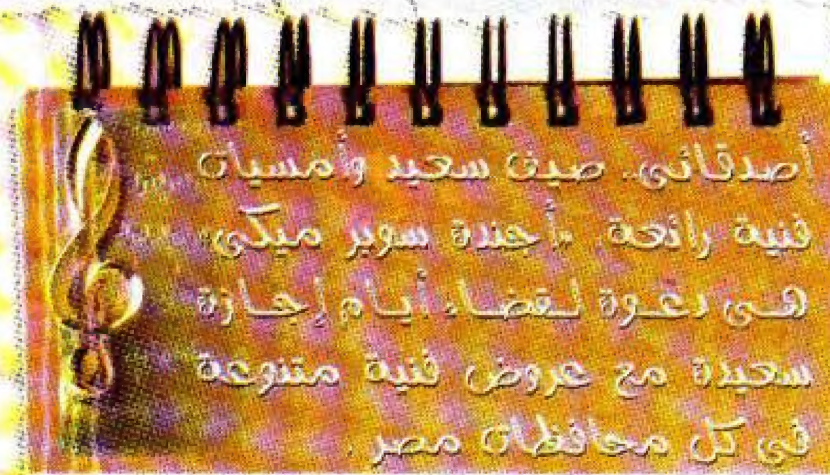 أصدقائى.. صيف سعيد وأمسيات
فنية رائعة. «أجندة سوبر ميكى»
هى دعوة لقضاء أيام إجازة
سعيدة مع عروض فنية متنوعة
فى كل محافظات مصر.